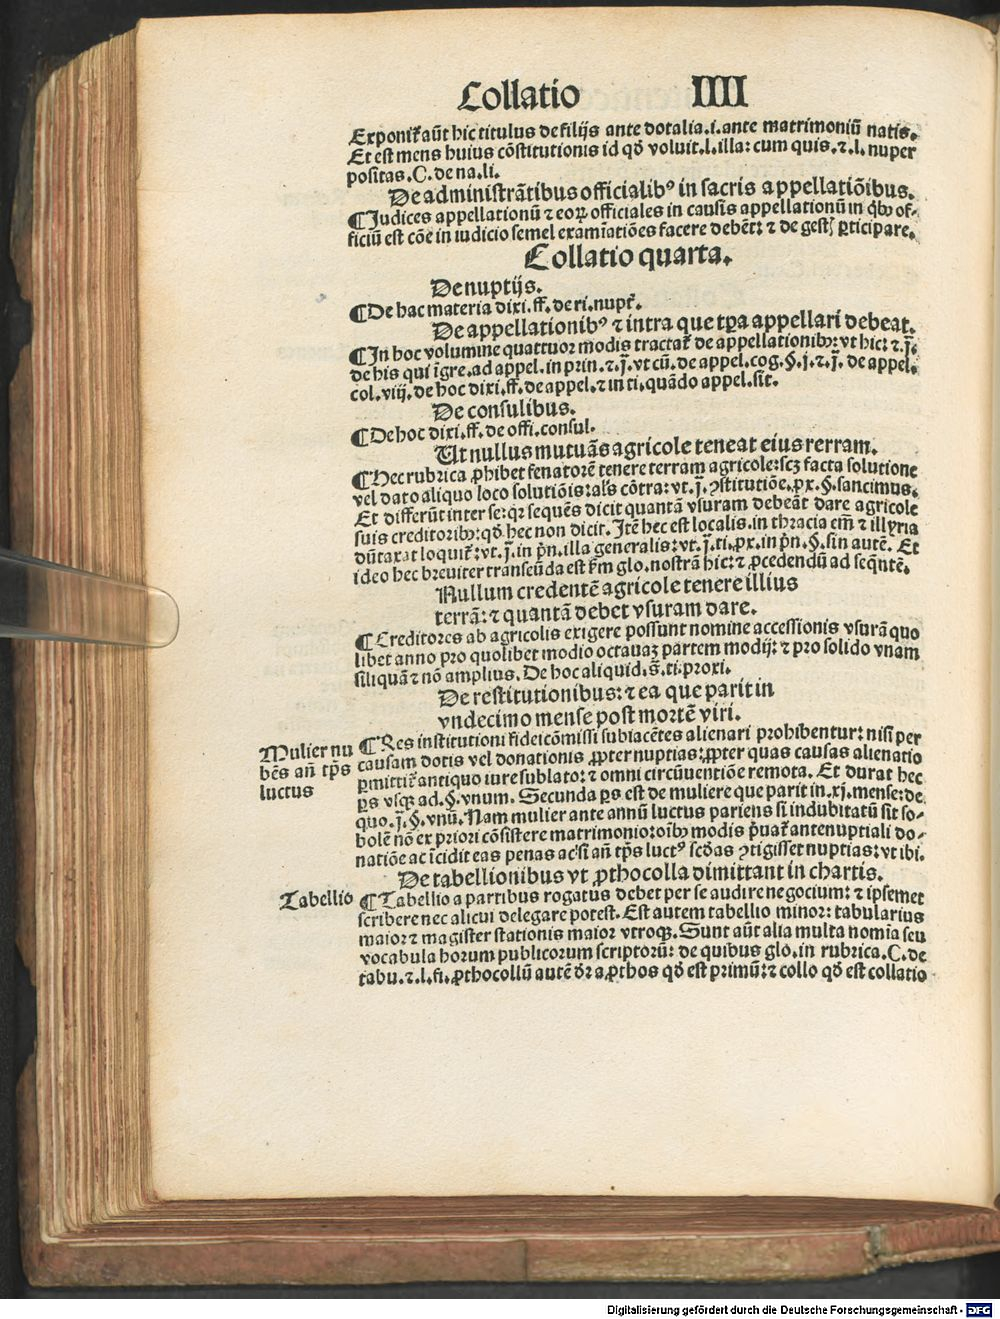 Collatio IIII
Exponit᷑ aūt hic titulus de filijs ante dotalia.i.ante matrimoniū natis.
Et est mens huius cōstitutionis id qđ voluit.l.illa: cum quis.⁊.l.nuper
positas.C.de na.li.
De administrātibus officialibꝰ in sacris appellatiōibus.
¶Judices appellationū ⁊ eoꝝ officiales in causis appellationū in qͥbꝫ of-
ficiū est cōe in iudicio semel examīatiōes facere debēt: ⁊ de gestꝭ ꝑticipare.
Collatio quarta.
De nuptijs.
¶De hac materia dixi.ff.de ri.nupt᷑.
De appellationibꝰ ⁊ intra que tꝑa appellari debeat.
¶In hoc volumine quattuor modis tractat᷑ de appellationibꝫ: vt hic: ⁊.j̄.
de his qui īgre.ad appel.in prin.⁊.j̄.vt cū.de appel.cog.§.j.⁊.j̄. de appel.
col.viij.de hoc dixi.ff.de appel.⁊ in ti.quādo appel.sit.
De consulibus.
¶De hoc dixi.ff.de offi.consul.
Ut nullus mutuās agricole teneat eius terram.
¶Hec rubrica ꝓhibet fenatorē tenere terram agricole: scꝫ facta solutione
vel dato aliquo loco solutiōis: al's cōtra: vt.j̄.ꝯstitutiōe.ꝓx.§.sancimus.
Et differūt inter se: qꝛ sequēs dicit quantā vsuram debeāt dare agricole
suis creditoribꝫ: qđ hec non dicit. Itē hec est localis.in thracia em̄ ⁊ illyria
dūtaxat loquit᷑: vt.j̄.in p̄n.illa generalis: vt.j̄.ti.ꝓx.in p̄n.§.sin autē. Et
ideo hec breuiter transeūda est ẜm glo.nostrā hic: ⁊ ꝓcedendū ad seq̄ntē.
Nullum credentē agricole tenere illius
terrā: ⁊ quantā debet vsuram dare.
¶Creditores ab agricolis exigere possunt nomine accessionis vsurā quo
libet anno pro quolibet modio octauaꝫ partem modij: ⁊ pro solido vnam
siliquā ⁊ nō amplius. De hoc aliquid.s̄.ti.proxi.
De restitutionibus: ⁊ ea que parit in
vndecimo mense post mortē viri.
Mulier nu
bēs an̄ tꝑs
luctus
¶Res institutioni fideicōmissi subiacētes alienari prohibentur: nisi per
causam dotis vel donationis ꝓpter nuptias: ꝓpter quas causas alienatio
ꝑmittit᷑ antiquo iure sublato: ⁊ omni circūuentiōe remota. Et durat hec
ꝑs vsqꝫ ad.§.vnum. Secunda ꝑs est de muliere que parit in.xj.mense: de
quo.j̄.§.vnū. Nam mulier ante annū luctus pariens si indubitatū sit so-
bolē nō ex priori cōsistere matrimonio: oībꝫ modis p̄uat᷑ antenuptiali do-
natiōe ac īcidit eas penas ac si an̄ tꝑs luctꝰ scđas ꝯtigisset nuptias: vt ibi.
De tabellionibus vt ꝓthocolla dimittant in chartis.
Tabellio
¶Tabellio a partibus rogatus debet per se audire negocium: ⁊ ipsemet
scribere nec alicui delegare potest. Est autem tabellio minor: tabularius
maior ⁊ magister stationis maior vtroqꝫ. Sunt aūt alia multa nomīa seu
vocabula horum publicorum scriptorū: de quibus glo.in rubrica.C.de
tabu.⁊.l.fi.ꝓthocollū autē dr̄ a ꝓthos qđ est primū: ⁊ collo qđ est collatio
Digitalisierung gefördert durch die Deutsche Forschungsgemeinschaft - DFG